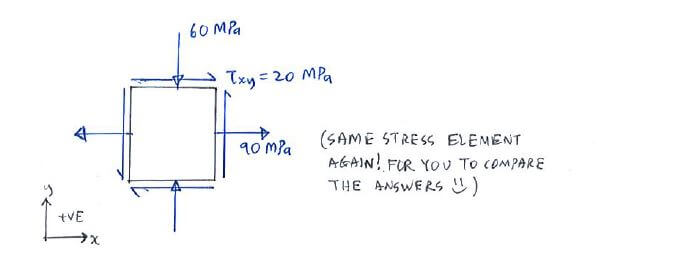 60 MPa
τxy = 20 MPa
90 MPa
(SAME STRESS ELEMENT
AGAIN! FOR YOU TO COMPARE
THE ANSWERS !! )
y
+VE
x